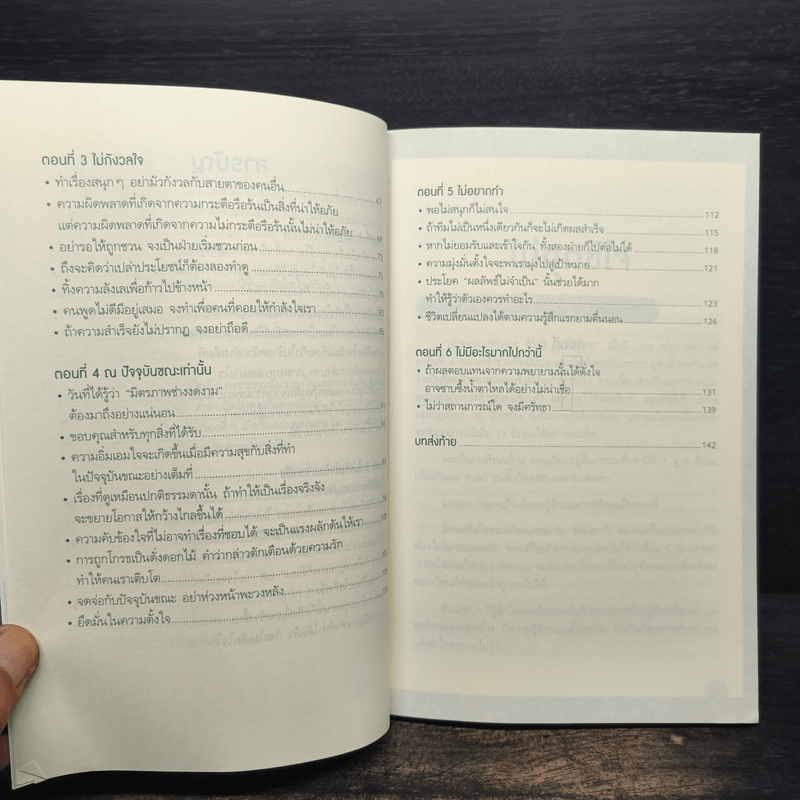 ตอนที่ 3 ไม่กังวลใจ
• ทำเรื่องสนุกๆ อย่ามัวกังวลกับสายตาของคนอื่น 67
• ความผิดพลาดที่เกิดจากความกระตือรือร้นเป็นสิ่งที่น่าให้อภัย
แต่ความผิดพลาดที่เกิดจากความไม่กระตือรือร้นนั้นไม่น่าให้อภัย 69
• อย่ารอให้ถูกชวน จงเป็นฝ่ายเริ่มชวนก่อน 71
• ถึงจะคิดว่าเปล่าประโยชน์ก็ต้องลองทำดู 75
• ทิ้งความลังเลเพื่อก้าวไปข้างหน้า 78
• คนพูดไม่ดีมีอยู่เสมอ จงทำเพื่อคนที่คอยให้กำลังใจเรา 81
• ถ้าความสำเร็จยังไม่ปรากฏ จงอย่าถือดี 85
ตอนที่ 4 ณ ปัจจุบันขณะเท่านั้น
• วันที่ได้รู้ว่า "มิตรภาพช่างงดงาม"
ต้องมาถึงอย่างแน่นอน 91
• ขอบคุณสำหรับทุกสิ่งที่ได้รับ
• ความอิ่มเอมใจจะเกิดขึ้นเมื่อมีความสุขกับสิ่งที่ทำ
ในปัจจุบันขณะอย่างเต็มที่ 95
• เรื่องที่ดูเหมือนปกติธรรมดานั้น ถ้าทำให้เป็นเรื่องจริงจัง
จะขยายโอกาสให้กว้างไกลขึ้นได้ 98
• ความคับข้องใจที่ไม่อาจทำเรื่องที่ชอบได้ จะเป็นแรงผลักดันให้เรา 100
• การถูกโกรธเป็นดั่งดอกไม้ คำว่ากล่าวตักเตือนด้วยความรัก
ทำให้คนเราเติบโต
• จดจ่อกับปัจจุบันขณะ อย่าห่วงหน้าพะวงหลัง
• ยึดมั่นในความตั้งใจ
ตอนที่ 5 ไม่อยากทำ
• พอไม่สนุกก็ไม่สนใจ 112
• ถ้าทีมไม่เป็นหนึ่งเดียวกันก็จะไม่เกิดผลสำเร็จ 115
• หากไม่ยอมรับและเข้าใจกัน ทั้งสองฝ่ายก็ไปต่อไม่ได้ 118
• ความมุ่งมั่นตั้งใจจะพาเรามุ่งไปสู่เป้าหมาย 121
• ประโยค "ผลลัพธ์ไม่จำเป็น" นั้นช่วยได้มาก
ทำให้รู้ว่าตัวเองควรทำอะไร 123
• ชีวิตเปลี่ยนแปลงได้ตามความรู้สึกแรกยามตื่นนอน 126
ตอนที่ 6 ไม่มีอะไรมากไปกว่านี้
• ถ้าผลตอบแทนจากความพยายามนั้นได้ดั่งใจ
อาจซาบซึ้งน้ำตาไหลได้อย่างไม่น่าเชื่อ 131
• ไม่ว่าสถานการณ์ใด จงมีศรัทธา 139
บทส่งท้าย 142